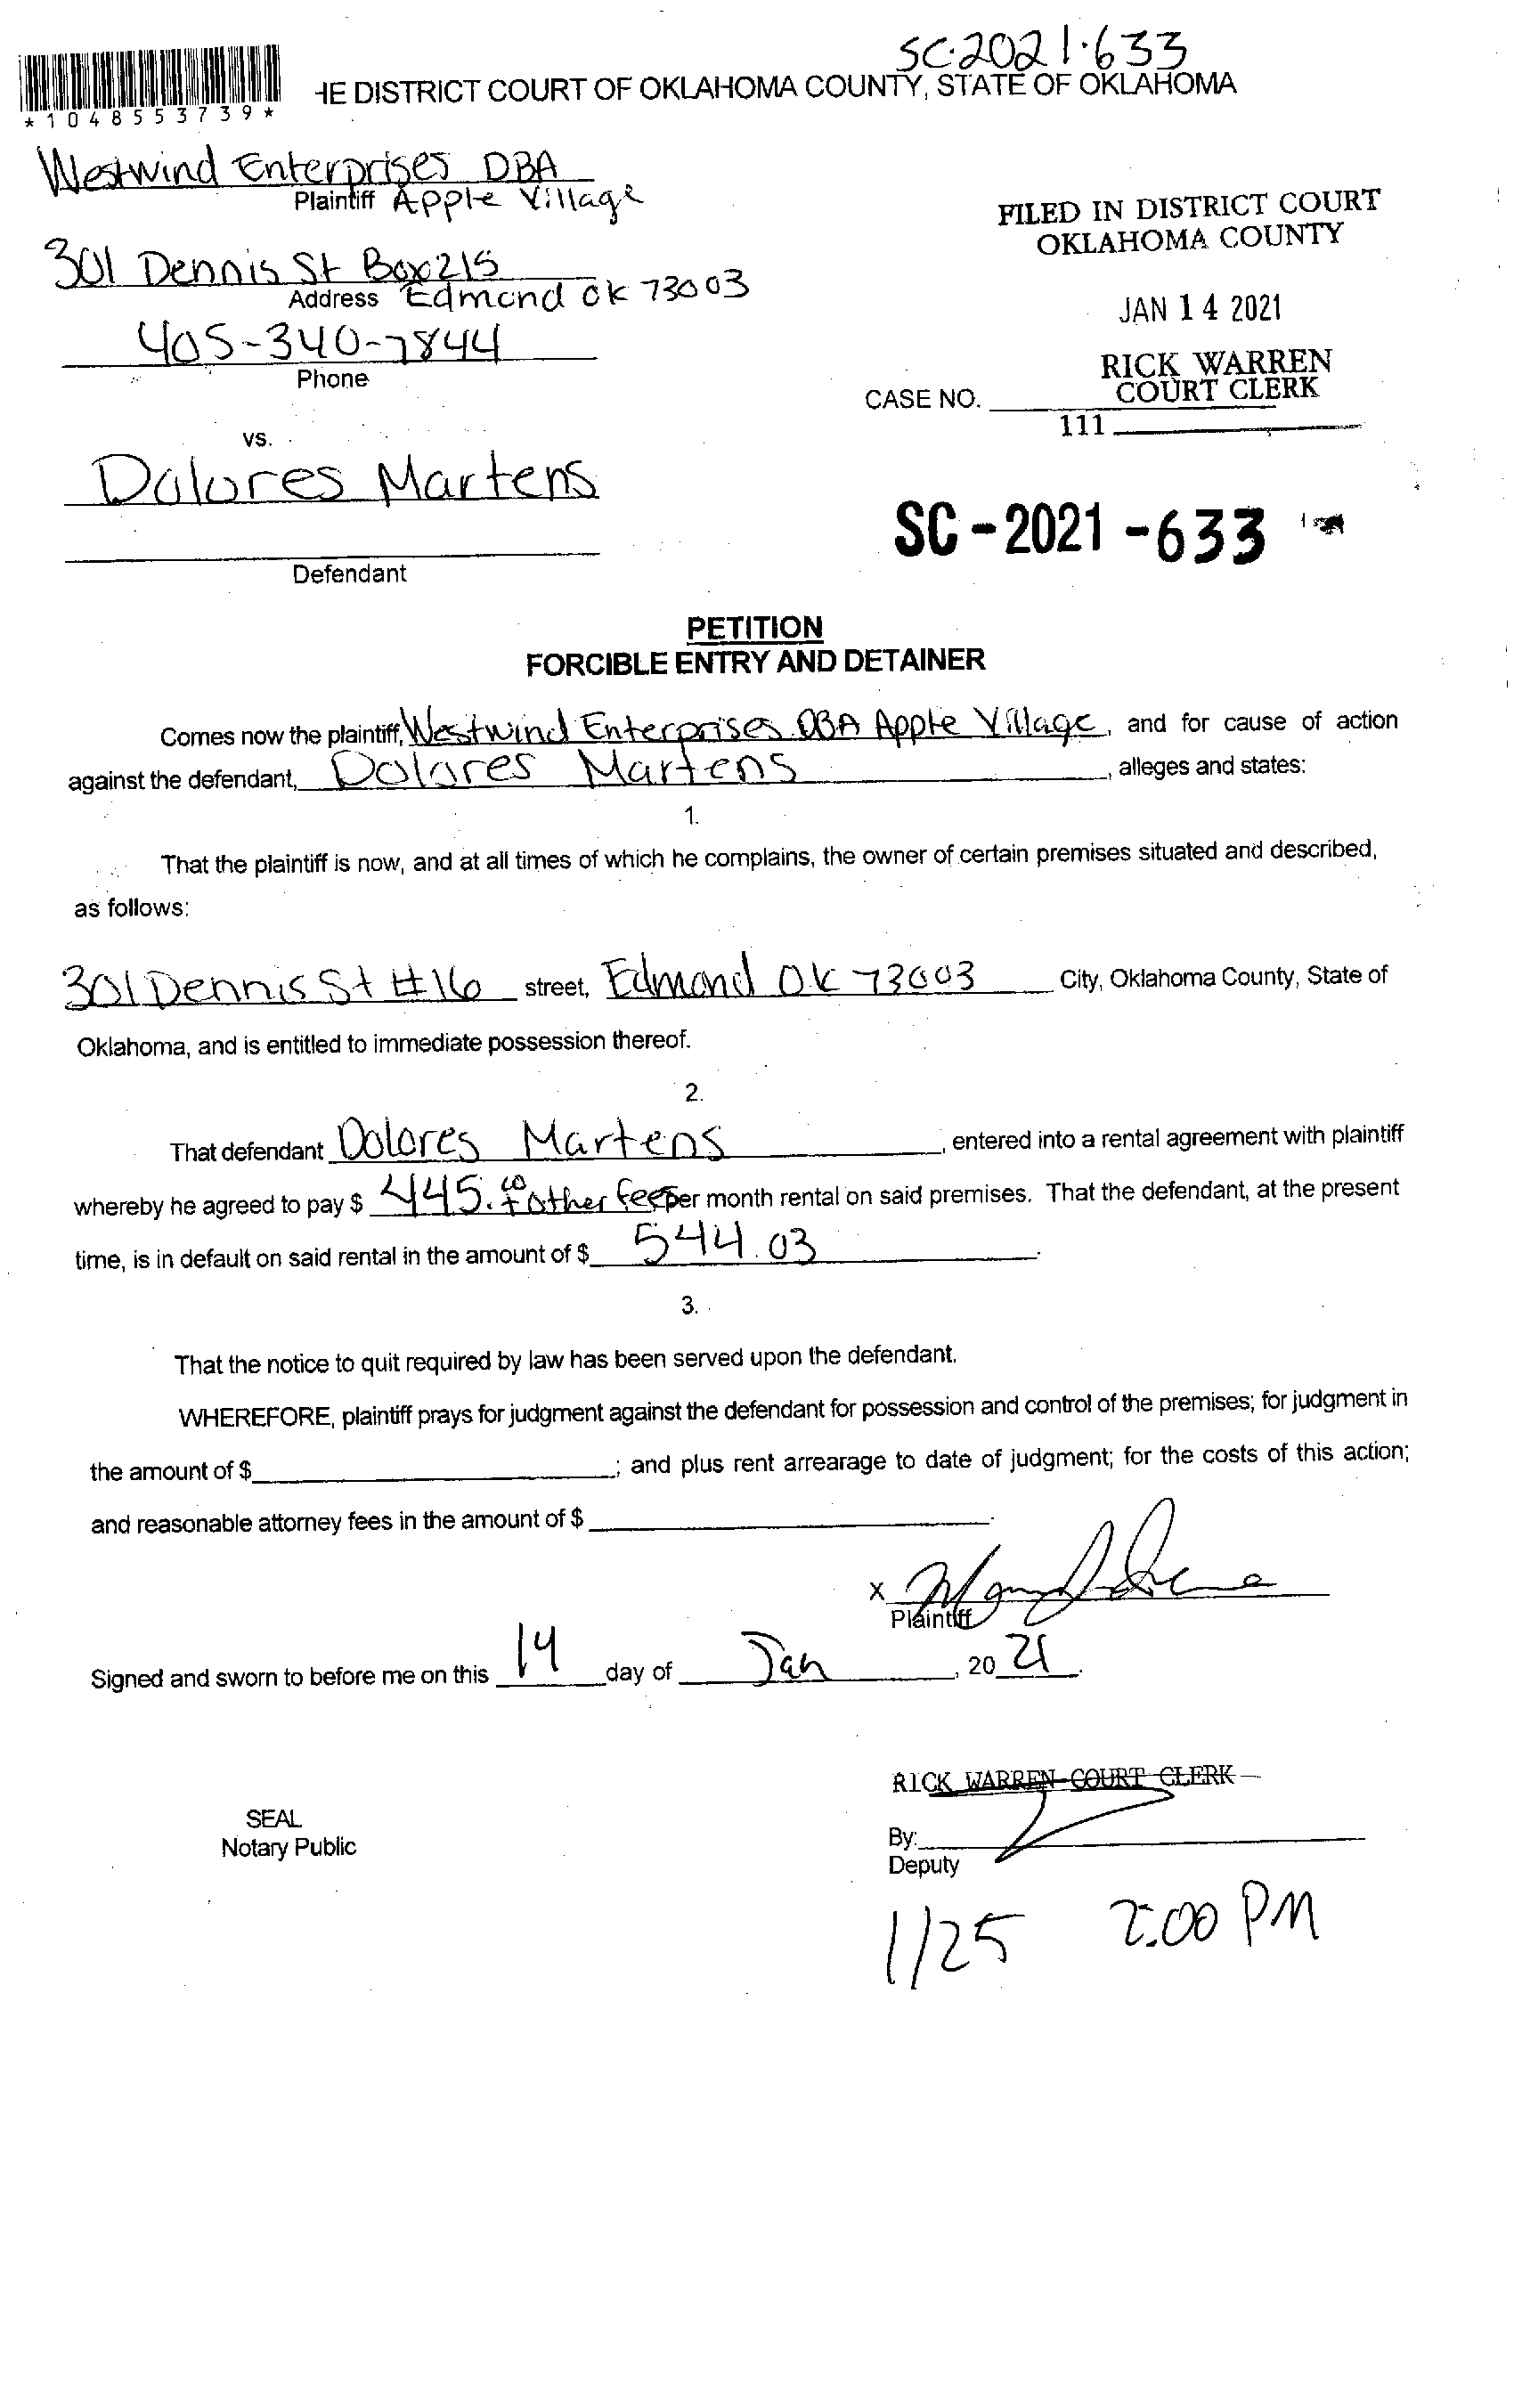 SC-2021-633
HE DISTRICT COURT OF OKLAHOMA COUNTY, STATE OF OKLAHOMA
*1048553739*
Westwind Enterprises DBA
Plaintiff Apple Village
FILED IN DISTRICT COURT
OKLAHOMA COUNTY
301 Dennis St Box 215
Address Edmond OK 73003
JAN 14 2021
405-340-7844
Phone
RICK WARREN
COURT CLERK
CASE NO.
111
vs.
Dolores Martens
SC-2021-633
Defendant
PETITION
FORCIBLE ENTRY AND DETAINER
Comes now the plaintiff, Westwind Enterprises DBA Apple Village, and for cause of action
against the defendant, Dolores Martens, alleges and states:
1.
That the plaintiff is now, and at all times of which he complains, the owner of certain premises situated and described,
as follows:
301 Dennis St #16 street, Edmond OK 73003 City, Oklahoma County, State of
Oklahoma, and is entitled to immediate possession thereof.
2.
That defendant Dolores Martens, entered into a rental agreement with plaintiff
whereby he agreed to pay $ 445.00 + other fees per month rental on said premises. That the defendant, at the present
time, is in default on said rental in the amount of $ 544.03.
3.
That the notice to quit required by law has been served upon the defendant.
WHEREFORE, plaintiff prays for judgment against the defendant for possession and control of the premises; for judgment in
the amount of $; and plus rent arrearage to date of judgment; for the costs of this action;
and reasonable attorney fees in the amount of $.
X
Plaintiff
Signed and sworn to before me on this 14 day of Jan, 2021.
RICK WARREN COURT CLERK
SEAL
Notary Public
By:
Deputy
1/25 2:00 PM